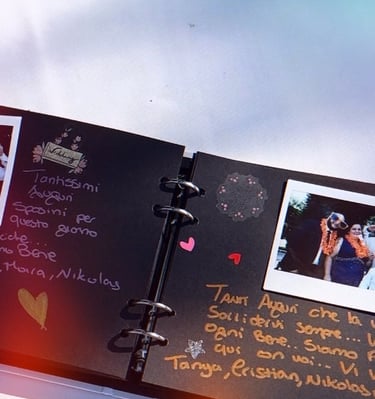 Tantissimi
Auguri
Sposini per
questo giorno
Bene
Nikolas
Tanti Auguri che la
Sorridervi sempre...
Ogni Bene.. Siamo
qui con voi... Vi
Tanya, Cristian, Nikolas,